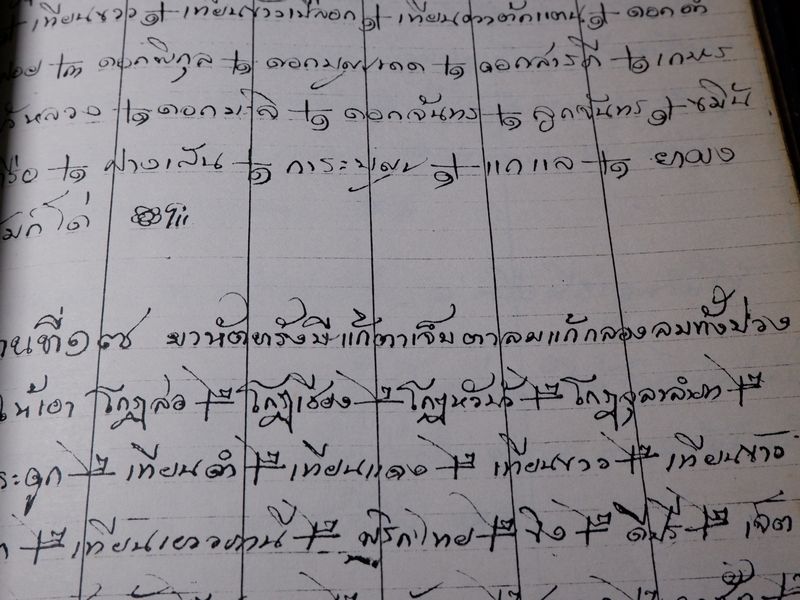 เทียนขาว ┼๑ เทียนขาวเปลือก ┼๑ เทียนตาตั๊กแตน ┼๑ ดอกคำ
ฝอย ┼๓ ดอกพิกุล ┼๑ ดอกบุญนาค ┼๑ ดอกสารภี ┼๑ เกษร
บัวหลวง ┼๑ ดอกมะลิ ┼๑ ดอกจันทร ┼๑ ลูกจันทร ┼๑ ขมิ้น
┼๑ ฝางเสน ┼๑ การะบูน ┼๑ แกแล ┼๑
ก็ได้
ขนานที่ ๑๗ แก้ตาเจ็บตาลมแก้กลองลมทั้งปวง
ให้เอา โกฏสอ ┼๒ โกฏเชียง ┼๒ โกฏหัวบัว ┼๒ โกฏจุลาลำพา ┼๒
กระดูก ┼๒ เทียนดำ ┼๒ เทียนแดง ┼๒ เทียนขาว ┼๒ เทียนข้าว
┼๒ เทียนเยาวพานี ┼๒ พริกไทย ┼๒ ขิง ┼๒ ดีปลี ┼๒ เจ็ต